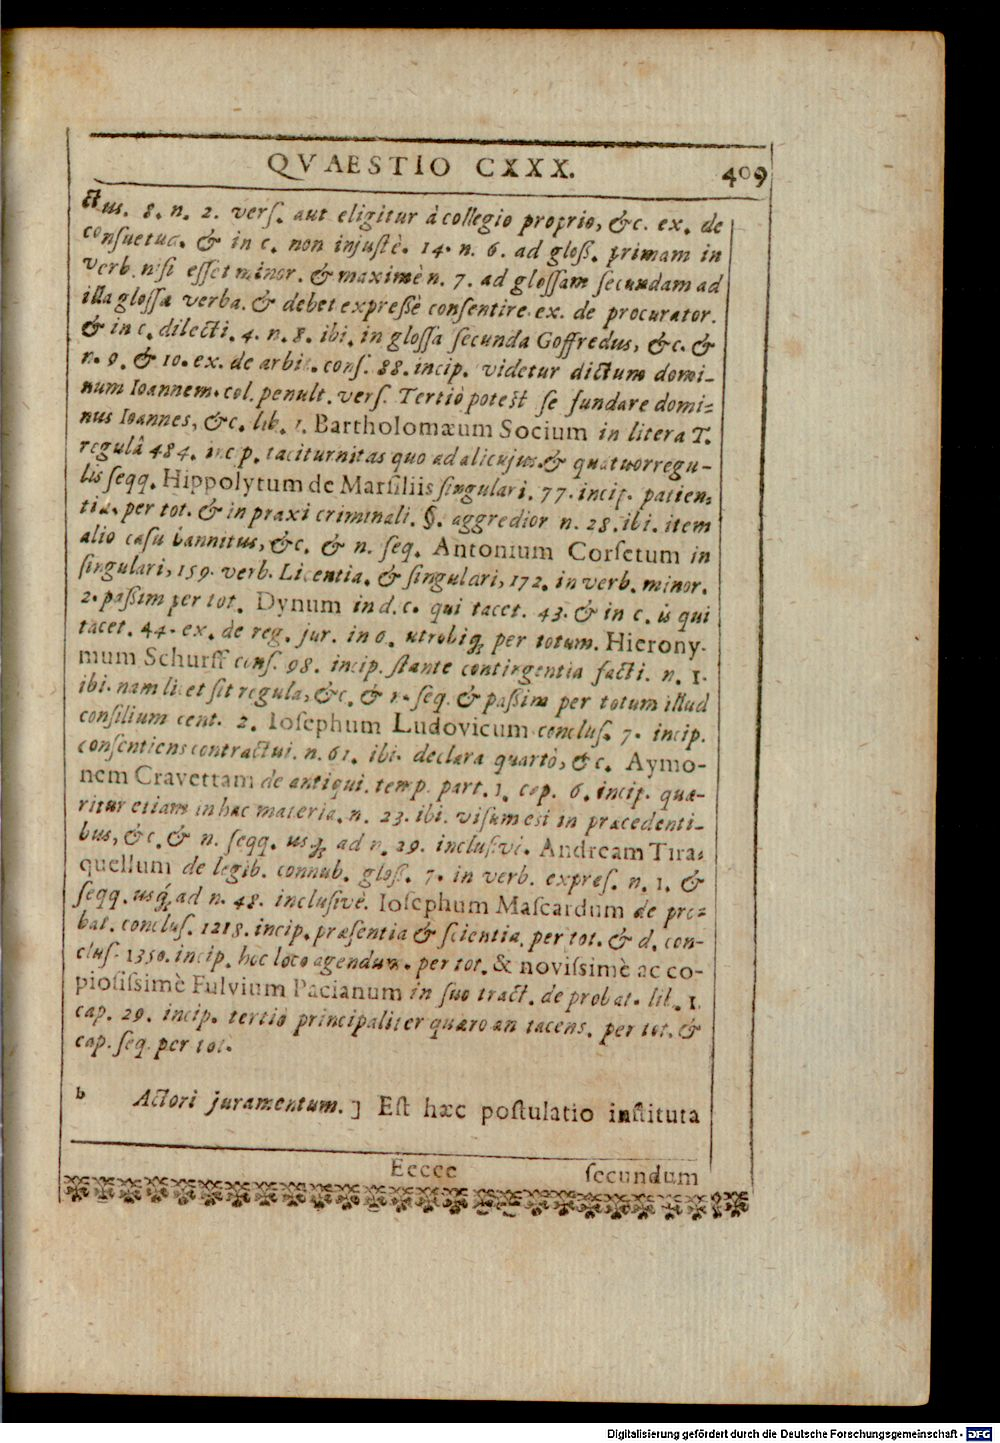 QVAESTIO CXXX. 409
ctus. 8. n. 2. verſ. aut eligitur à collegio proprio, &c. ex. de
conſuetud. & in c. non injuſtè. 14. n. 6. ad gloß. primam in
verb. niſi eſſet minor. & maximè n. 7. ad gloſſam ſecundam ad
illa gloſſæ verba. & debet expreßè conſentire. ex. de procurator.
& in c. dilecti. 4. n. 8. ibi. in gloſſa ſecunda Goffredus, &c. &
n. 9. & 10. ex. de arbit. conſ. 88. incip. videtur dictum domi-
num Ioannem. col. penult. verſ. Tertiò poteſt ſe fundare domi-
nus Ioannes, &c. lib. 1. Bartholomæum Socium in litera T.
regulâ 484. incip. taciturnitas quo ad alicujus. & quatuor regu-
lis ſeqq. Hippolytum de Marſiliis ſingulari. 77. incip. patien-
tia. per tot. & in praxi criminali. §. aggredior n. 28. ibi. item
alio caſu bannitus, &c. & n. ſeq. Antonium Corſetum in
ſingulari, 159. verb. Licentia. & ſingulari, 172. in verb. minor.
2. paßim per tot. Dynum in d. c. qui tacet. 43. & in c. is qui
tacet. 44. ex. de reg. jur. in 6. utrobiq; per totum. Hierony-
mum Schurff conſ. 98. incip. ſtante contingentia facti. n. 1.
ibi. nam licet ſit regula, &c. & n. ſeq. & paßim per totum illud
conſilium cent. 2. Ioſephum Ludovicum concluſ. 7. incip.
conſentiens contractui. n. 61. ibi. declara quartò, &c. Aymo-
nem Cravettam de antiqui. temp. part. 1. cap. 6. incip. quæ-
ritur etiam in hac materia. n. 23. ibi. viſum eſt in præcedenti-
bus, &c. & n. ſeqq. usq; ad n. 29. incluſivè. Andream Tira-
quellum de legib. connub. gloſ. 7. in verb. expreſ. n. 1. &
ſeqq. usq; ad n. 48. incluſivè. Ioſephum Maſcardum de pro-
bat. concluſ. 1218. incip. præſentia & ſcientia. per tot. & d. con-
cluſ. 1350. incip. hoc loco agendum. per tot. & noviſsimè ac co-
pioſiſsimè Fulvium Pacianum in ſuo tract. de probat. lib. 1.
cap. 29. incip. tertiò principaliter quæro an tacens. per tot. &
cap. ſeq. per tot.
b Actori juramentum. ] Eſt hæc poſtulatio inſtituta
Eeeee ſecundum
Digitalisierung gefördert durch die Deutsche Forschungsgemeinschaft - DFG